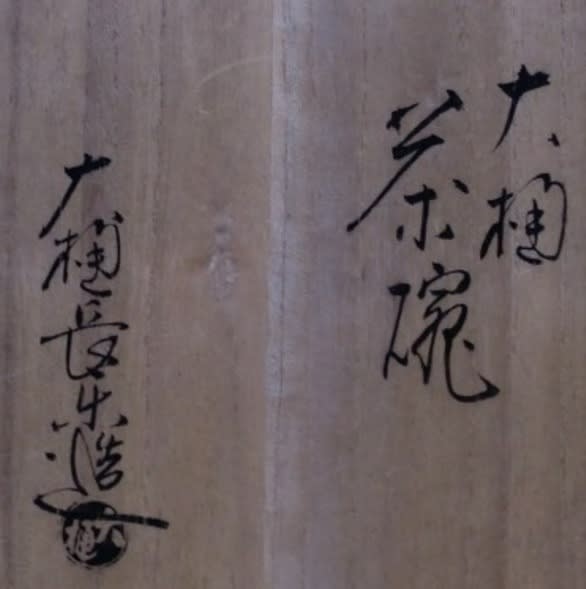 大樋
茶碗
大樋長楽造
大樋